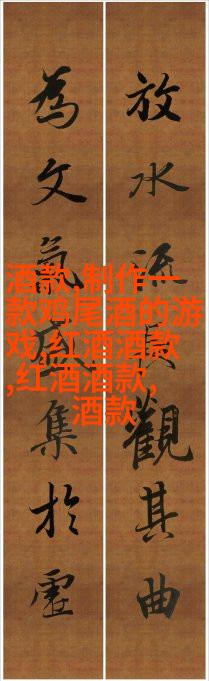 放水流觀其曲
為文氣盛集於虛
酒款,制作一
款鸡尾酒的游
戏,红酒酒款
,红酒酒款,
酒款